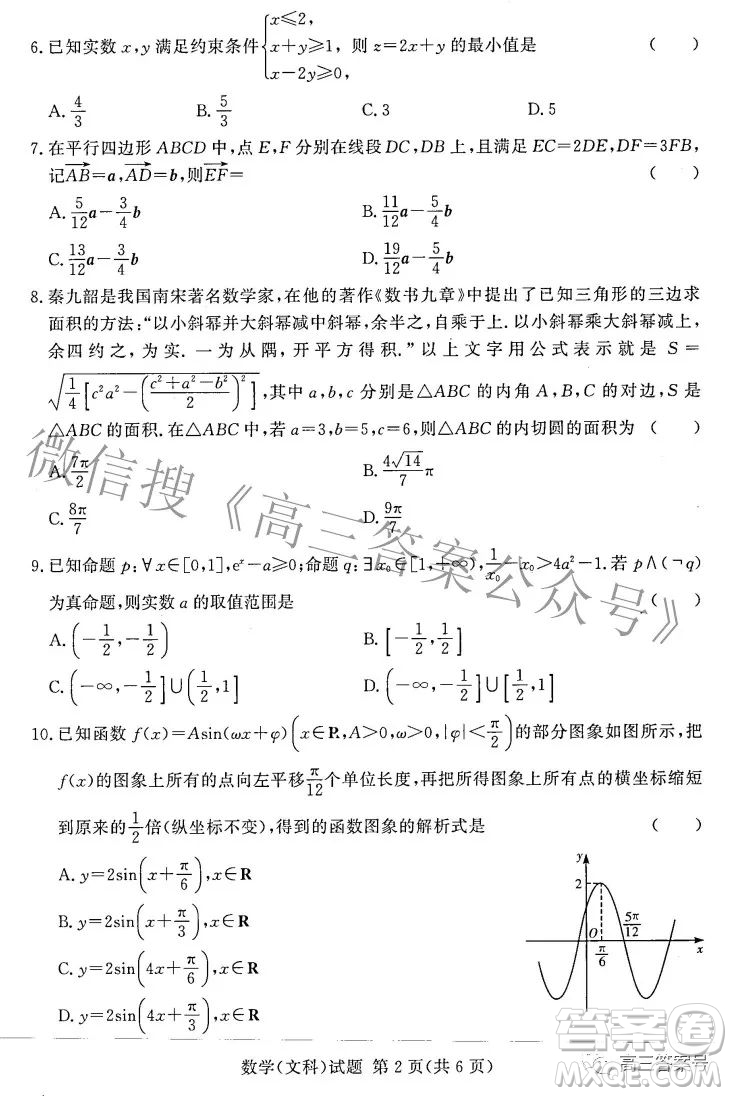 6.已知实数 x,y 满足约束条件{x≤2, x+y≥1, x-2y≥0, 则 z=2x+y 的最小值是 ( )
A. 4/3 B. 5/3 C. 3 D. 5
7.在平行四边形 ABCD 中,点 E,F 分别在线段 DC,DB 上,且满足 EC=2DE,DF=3FB,
记\overrightarrow{AB}=a,\overrightarrow{AD}=b,则\overrightarrow{EF}= ( )
A. 5/12 a - 3/4 b B. 11/12 a - 5/4 b
C. 13/12 a - 3/4 b D. 19/12 a - 5/4 b
8.秦九韶是我国南宋著名数学家,在他的著作《数书九章》中提出了已知三角形的三边求
面积的方法:“以小斜幂并大斜幂减中斜幂,余半之,自乘于上.以小斜幂乘大斜幂减上,
余四约之,为实.一为从隅,开平方得积.”以上文字用公式表示就是 S=
√(1/4[c²a²-((c²+a²-b²)/2)²]),其中 a,b,c 分别是△ABC 的内角 A,B,C 的对边,S 是
△ABC 的面积.在△ABC 中,若 a=3,b=5,c=6,则△ABC 的内切圆的面积为 ( )
A. 7π/2 B. 4√14/7 π
C. 8π/7 D. 9π/7
9.已知命题 p:∀x∈[0,1],eˣ-a≥0;命题 q:∃x₀∈[1,+∞),1/x₀-x₀>4a²-1.若 p∧(¬q)
为真命题,则实数 a 的取值范围是 ( )
A.(-1/2,-1/2) B.[-1/2,1/2]
C.(-∞,-1/2]∪(1/2,1] D.(-∞,-1/2]∪[1/2,1]
10.已知函数 f(x)=Asin(ωx+φ)(x∈R,A>0,ω>0,|φ|<π/2)的部分图象如图所示,把
f(x)的图象上所有的点向左平移π/12个单位长度,再把所得图象上所有点的横坐标缩短
到原来的1/2倍(纵坐标不变),得到的函数图象的解析式是 ( )
A. y=2sin(x+π/6),x∈R
B. y=2sin(x+π/3),x∈R
C. y=2sin(4x+π/6),x∈R
D. y=2sin(4x+π/3),x∈R
y
2
5π/12
O
π/6
x
数学(文科)试题 第 2 页(共 6 页)
微信搜《高三答案公众号》
答案圈
高三答案号
MXQE.COM